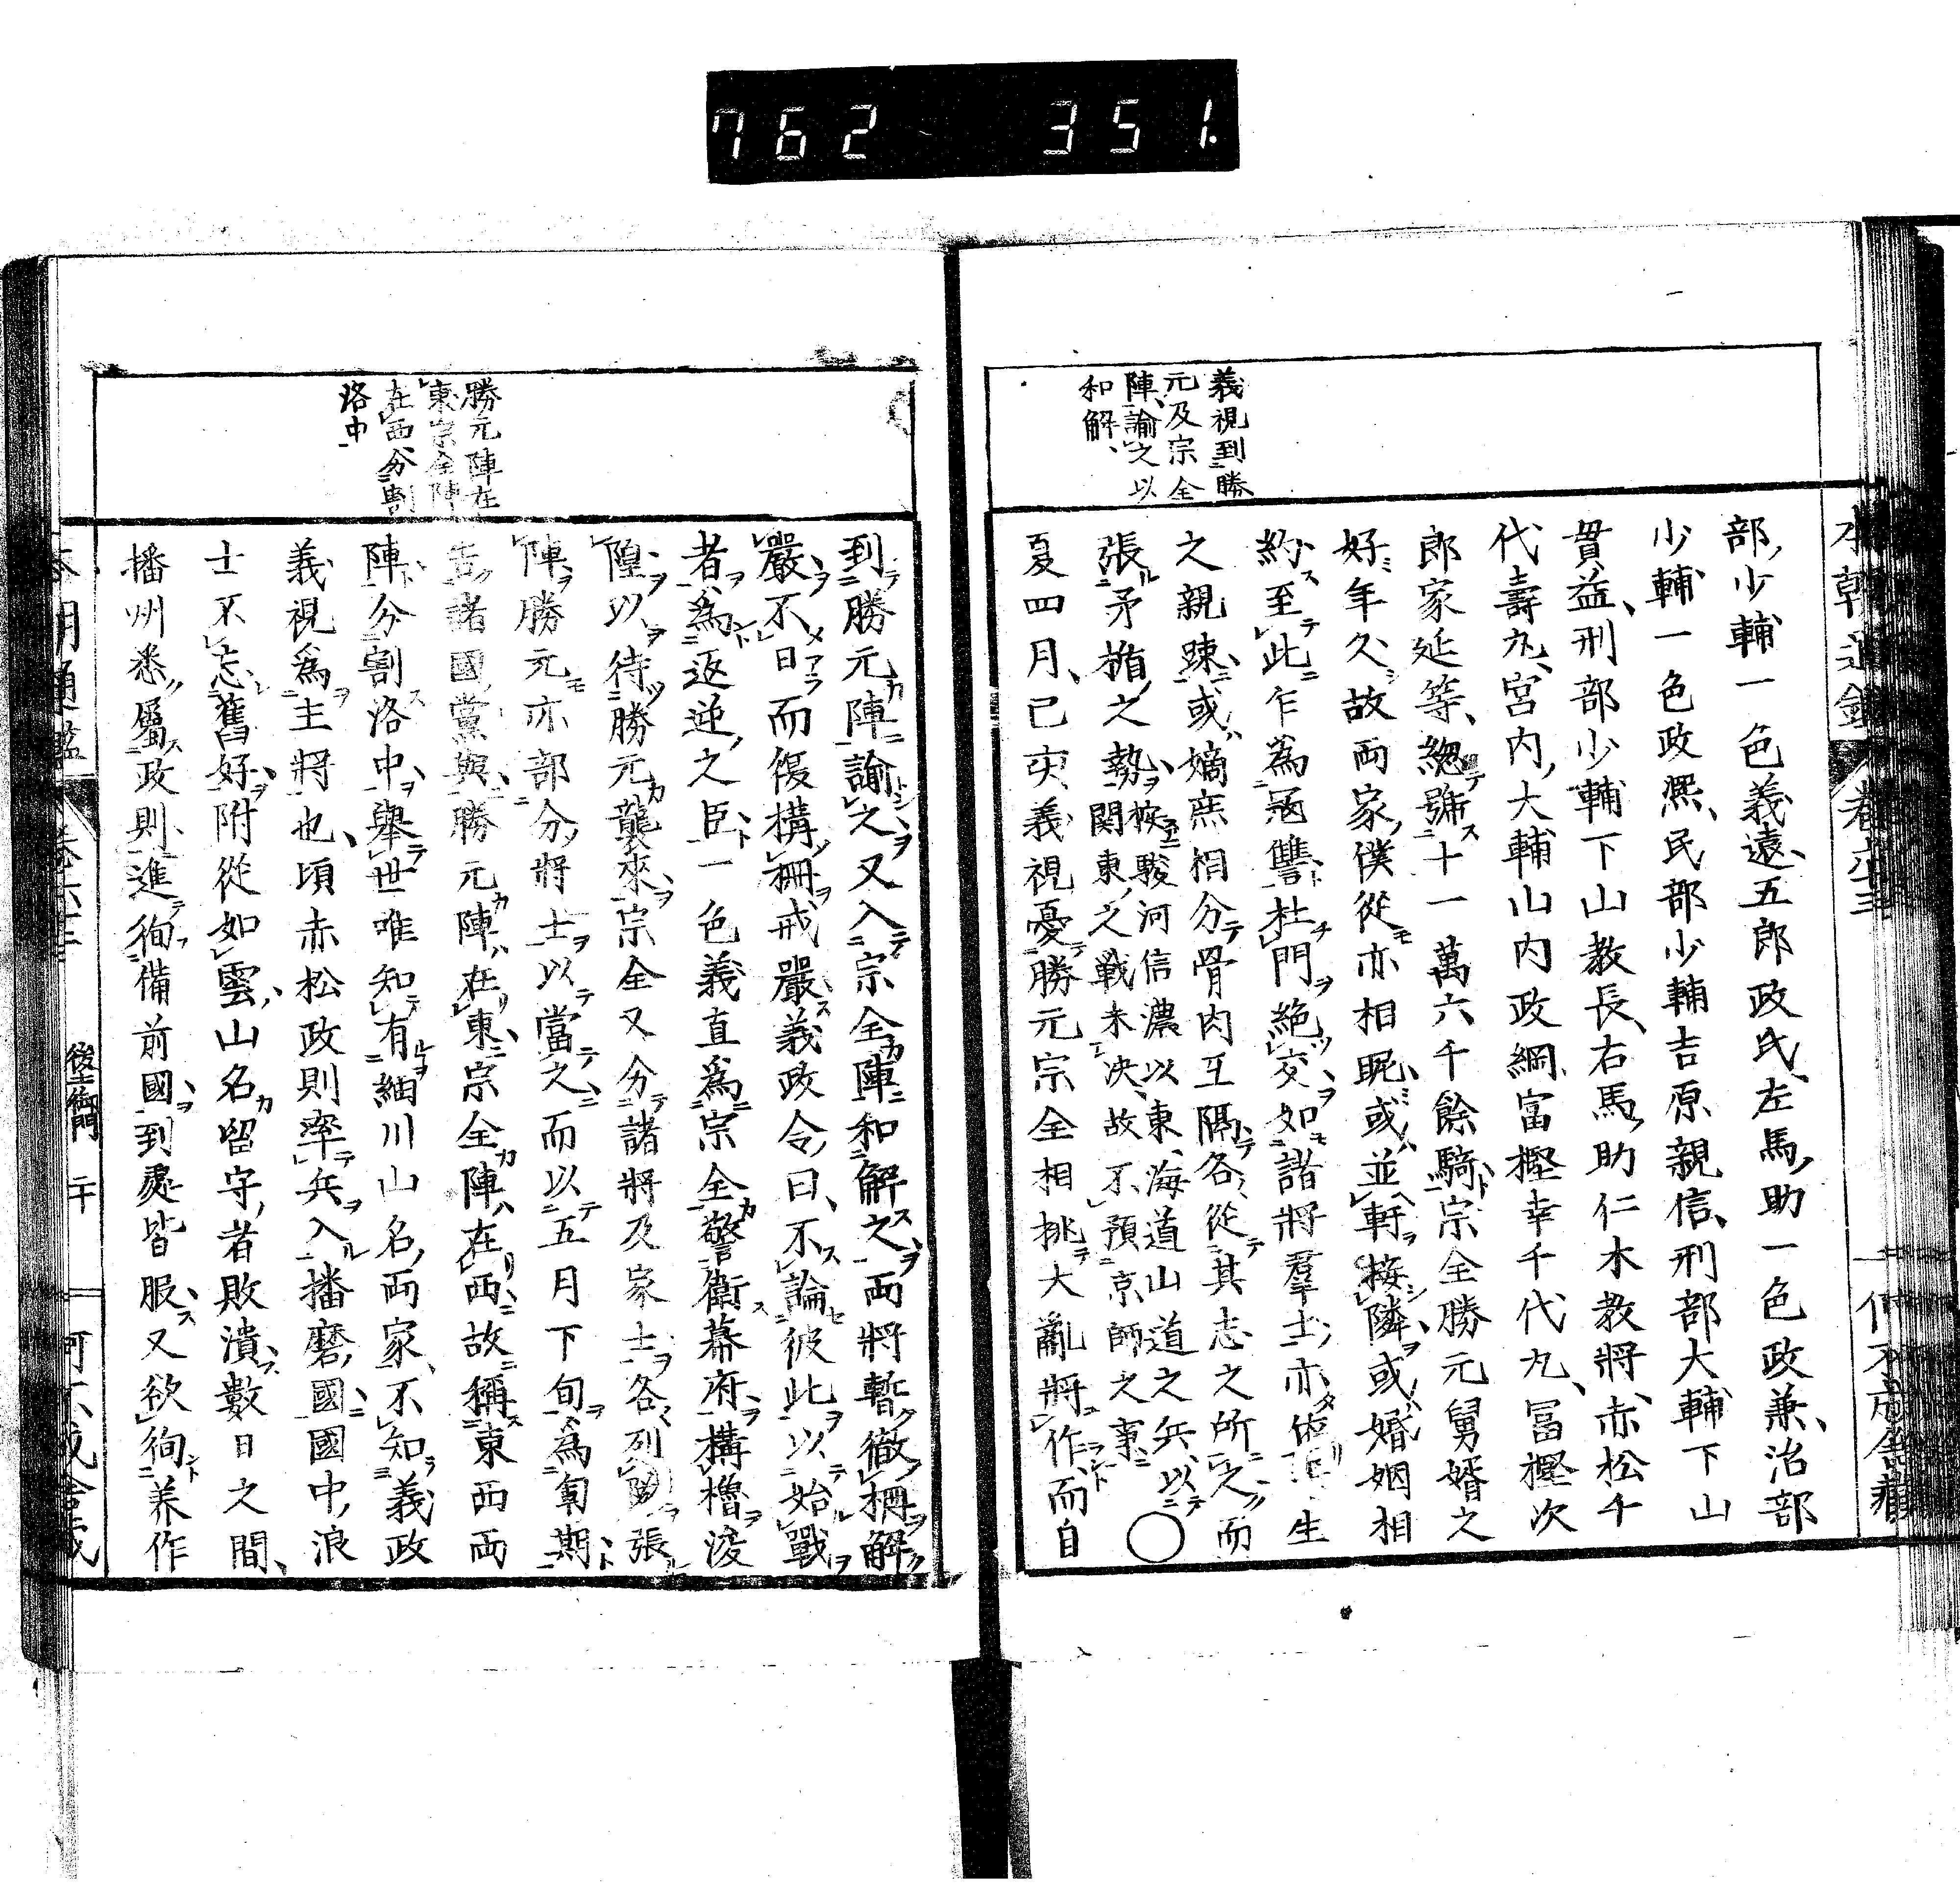 762 351.
義視到勝
元及宗全
陣、諭之以
和解、
部少輔一色義遠、五郎政氏、左馬助一色政兼、治部
少輔一色政凞、民部少輔吉原親信、刑部大輔下山
貫益、刑部少輔下山教長、右馬助仁木教將、赤松千
代壽丸、宮内大輔山内政綱、富樫幸千代丸、冨樫次
郎家延等、總號十一萬六千餘騎、宗全勝元舅婿之
好年久、故両家僕從亦相昵、或並軒接隣、或婚姻相
約、至此乍為寇讐、杜門絶交、如諸將羣士亦生
之親踈、或嫡庶相分、骨肉互隔、各從其志之所之、而
張矛楯之勢、
按駿河信濃以東、海道山道之兵、以
関東之戦未决、故不預京師之事、
○
夏四月、已刻、義視憂勝元宗全相挑大亂將作、而自
勝元陣在
東宗全陣
在西、分割
洛中
到勝元陣諭之、又入宗全陣和解之、両將暫徹柵解
嚴、不日而復構柵戒嚴、義政令曰、不論彼此以始戰
者為返逆之臣、一色義直為宗全警衛幕府、構櫓浚
隍、以待勝元襲來、宗全又分諸將及家士各列張
陣、勝元亦部分將士以當之、而以五月下旬為軍期、
諸國黨與勝元陣在東、宗全陣在西、故稱東西両
陣、分割洛中、擧世唯知有細川山名両家、不知義政
義視為主將也、頃赤松政則率兵入播磨國、國中浪
士不忘舊好、附從如雲、山名留守者敗潰、數日之間、
播州悉屬政則、進徇備前國、到處皆服、又欲徇美作
後土御門 二十